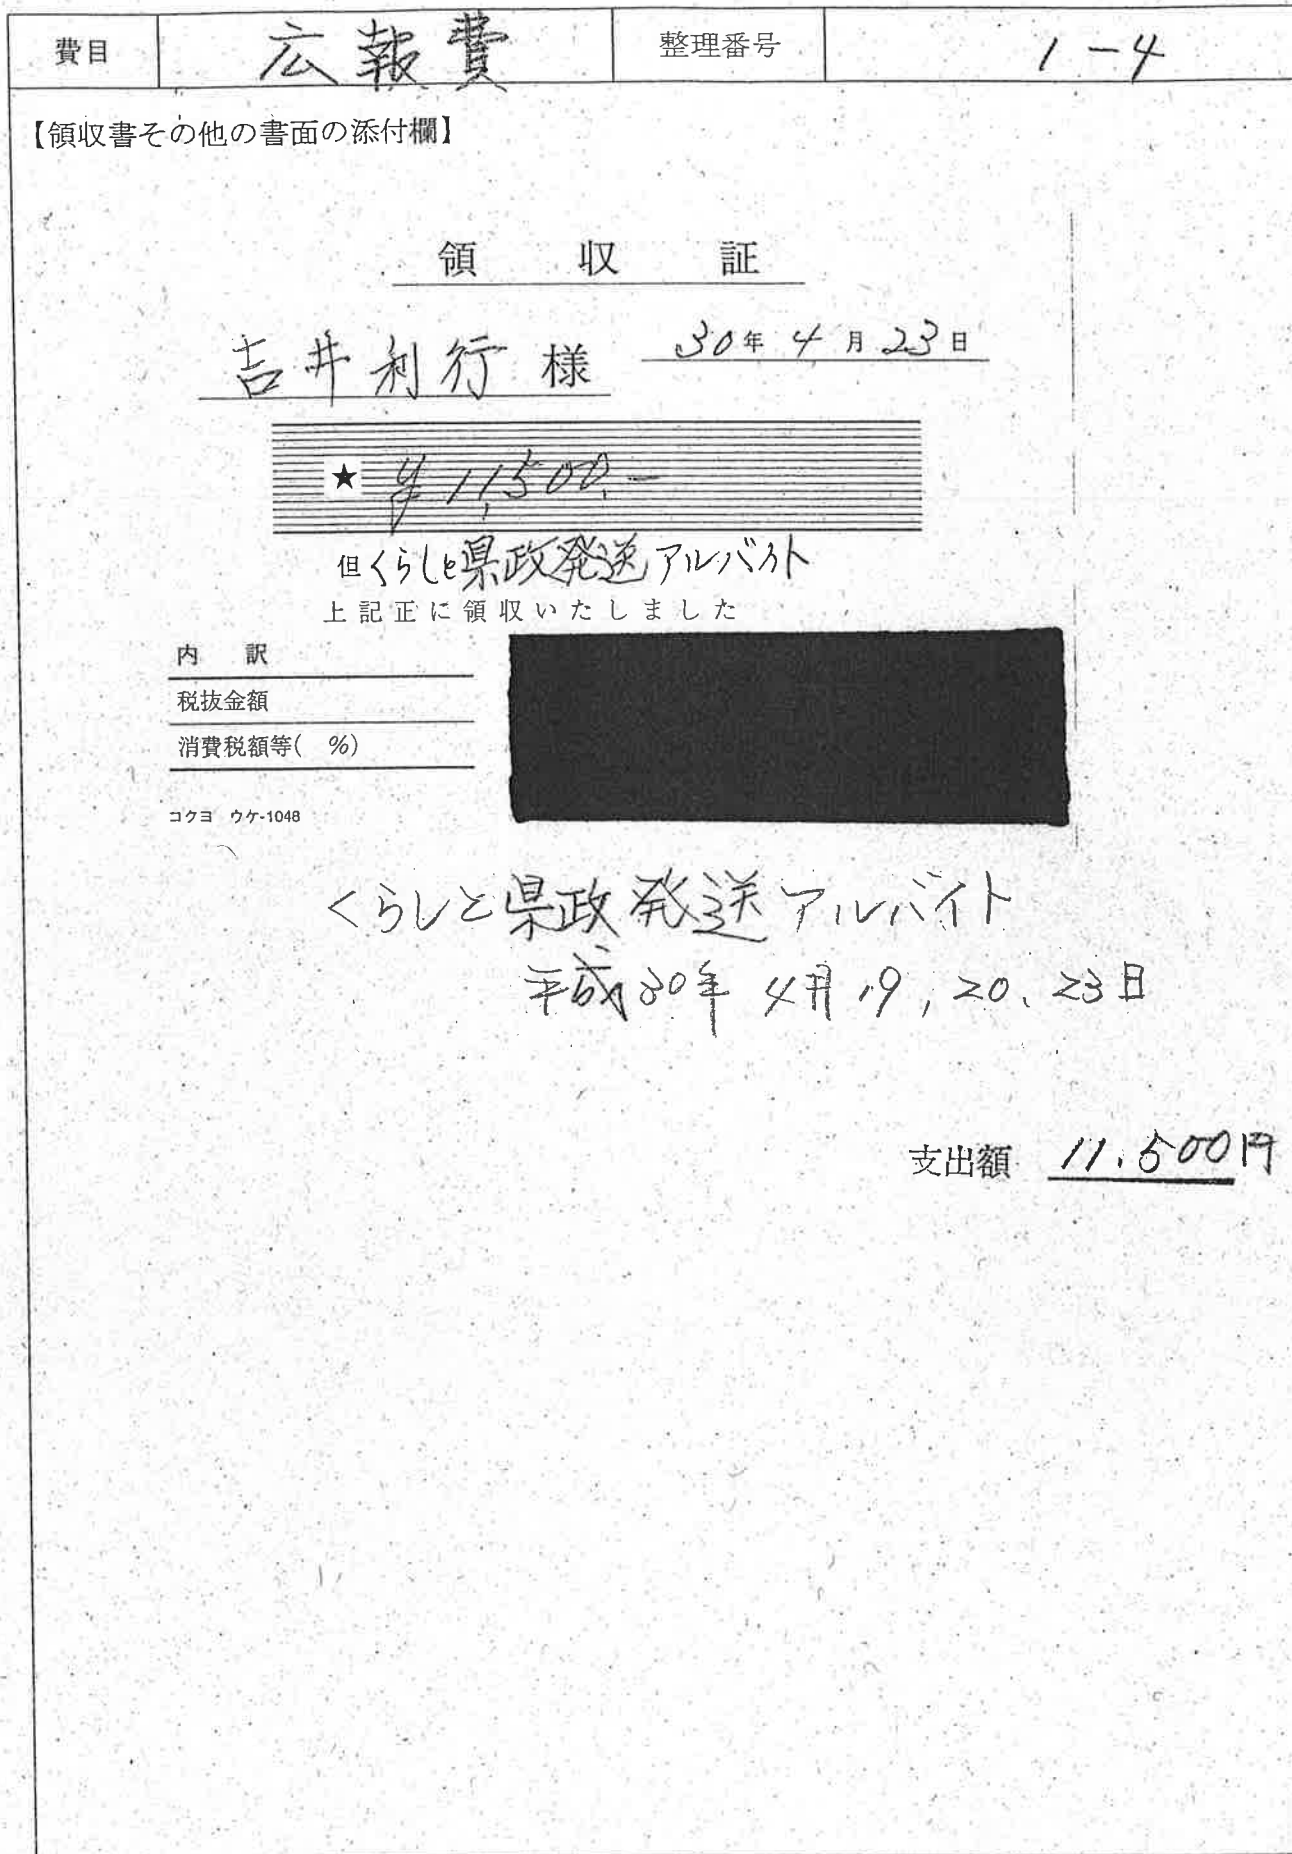 費目 広報費 整理番号 1-4
【領収書その他の書面の添付欄】
領収証
吉井利行様 30年4月23日
★ ¥11,500.-
但くらしと県政発送アルバイト
上記正に領収いたしました
内訳
税抜金額
消費税額等( %)
コクヨ ウケ-1048
くらしと県政発送アルバイト
平成30年4月19,20、23日
支出額 11.500円